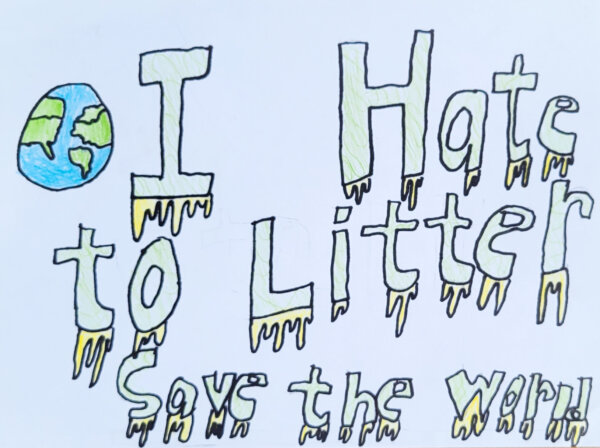 I Hate
to Litter
Save the World